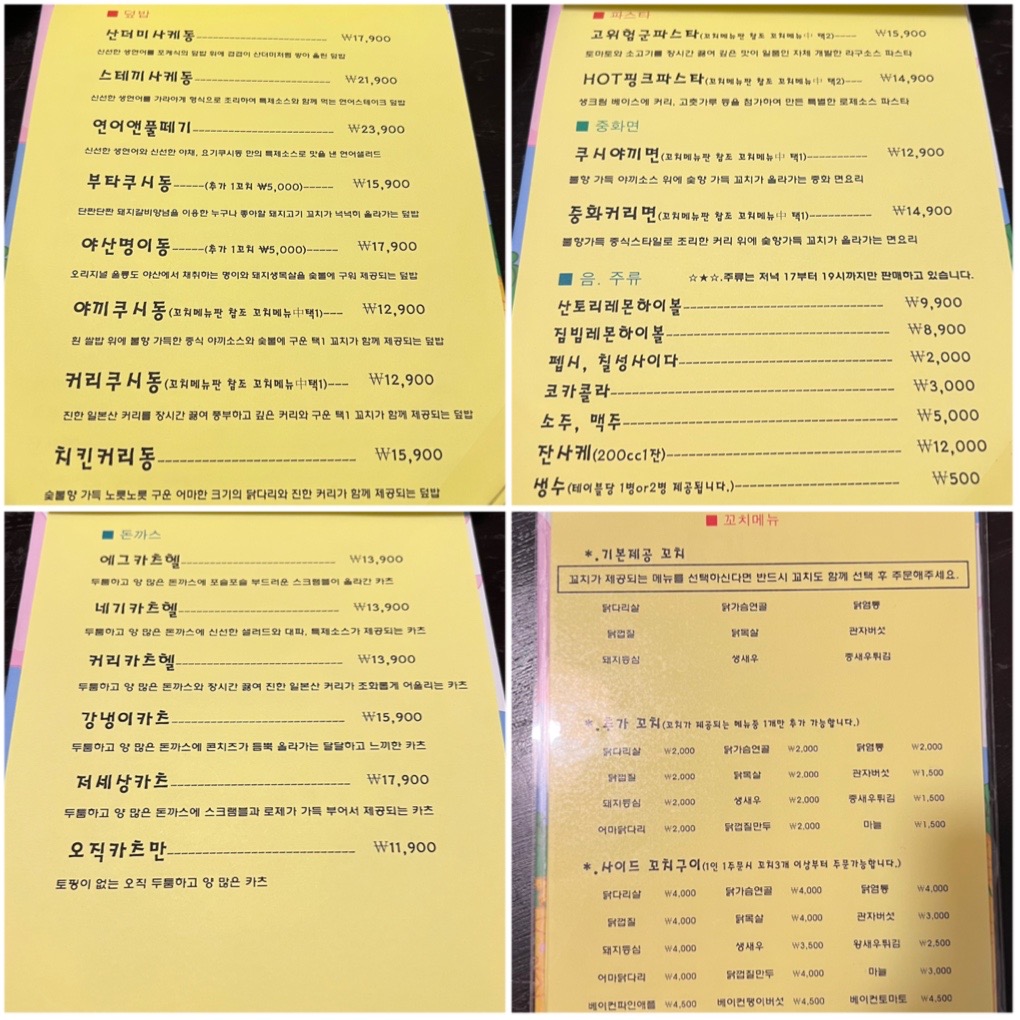 ■ 덮밥
산더미사케동 ₩17,900
신선한 생연어를 포케식의 덮밥 위에 겹겹이 산더미처럼 쌓아 올린 덮밥
스테끼사케동 ₩21,900
신선한 생연어를 가라아게 형식으로 조리하여 특제소스와 함께 먹는 연어스테이크 덮밥
연어앤풀떼기 ₩23,900
신선한 생연어와 신선한 야채, 요기쿠시동 만의 특제소스로 맛을 낸 연어샐러드
부타쿠시동-----(추가 1꼬치 ₩5,000)----- ₩15,900
단짠단짠 돼지갈비양념을 이용한 누구나 좋아할 돼지고기 꼬치가 넉넉히 올라가는 덮밥
야산명이동-----(추가 1꼬치 ₩5,000)----- ₩17,900
오리지널 울릉도 야산에서 채취하는 명이와 돼지생목살을 숯불에 구워 제공되는 덮밥
야끼쿠시동(꼬치메뉴판 참조 꼬치메뉴中택1)--- ₩12,900
흰 쌀밥 위에 불향 가득한 중식 야끼소스와 숯불에 구운 택1 꼬치가 함께 제공되는 덮밥
커리쿠시동(꼬치메뉴판 참조 꼬치메뉴中택1)--- ₩12,900
진한 일본산 커리를 장시간 끓여 풍부하고 깊은 커리와 구운 택1 꼬치가 함께 제공되는 덮밥
치킨커리동 ₩15,900
숯불향 가득 노릇노릇 구운 어마한 크기의 닭다리와 진한 커리가 함께 제공되는 덮밥
■ 파스타
고위험군파스타(꼬치메뉴판 참조 꼬치메뉴中 택2)--- ₩15,900
토마토와 소고기를 장시간 끓여 깊은 맛이 일품인 자체 개발한 라구소스 파스타
HOT핑크파스타(꼬치메뉴판 참조 꼬치메뉴中 택2)--- ₩14,900
생크림 베이스에 커리, 고춧가루 등을 첨가하여 만든 특별한 로제소스 파스타
■ 중화면
쿠시야끼면(꼬치메뉴판 참조 꼬치메뉴中 택1)---------- ₩12,900
불향 가득 야끼소스 위에 숯향 가득 꼬치가 올라가는 중화 면요리
중화커리면(꼬치메뉴판 참조 꼬치메뉴中 택1)---------- ₩14,900
불향가득 중식스타일로 조리한 커리 위에 숯향가득 꼬치가 올라가는 면요리
■ 음. 주류 ☆★☆.주류는 저녁 17부터 19시까지만 판매하고 있습니다.
산토리레몬하이볼 ₩9,900
짐빔레몬하이볼 ₩8,900
펩시, 칠성사이다 ₩2,000
코카콜라 ₩3,000
소주, 맥주 ₩5,000
잔사케(200cc1잔) ₩12,000
생수(테이블당 1병or2병 제공됩니다.) ₩500
■ 돈까스
에그카츠헬 ₩13,900
두툼하고 양 많은 돈까스에 포슬포슬 부드러운 스크램블이 올라간 카츠
네기카츠헬 ₩13,900
두툼하고 양 많은 돈까스에 신선한 샐러드와 대파, 특제소스가 제공되는 카츠
커리카츠헬 ₩13,900
두툼하고 양 많은 돈까스와 장시간 끓여 진한 일본산 커리가 조화롭게 어울리는 카츠
강냉이카츠 ₩15,900
두툼하고 양 많은 돈까스에 콘치즈가 듬뿍 올라가는 달달하고 느끼한 카츠
저세상카츠 ₩17,900
두툼하고 양 많은 돈까스에 스크램블과 로제가 가득 부어서 제공되는 카츠
오직카츠만 ₩11,900
토핑이 없는 오직 두툼하고 양 많은 카츠
■ 꼬치메뉴
*.기본제공 꼬치
꼬치가 제공되는 메뉴를 선택하신다면 반드시 꼬치도 함께 선택 후 주문해주세요.
닭다리살 닭가슴연골 닭염통
닭껍질 닭목살 관자버섯
돼지등심 생새우 중새우튀김
*.추가 꼬치(꼬치가 제공되는 메뉴중 1개만 추가 가능합니다.)
닭다리살 ₩2,000 닭가슴연골 ₩2,000 닭염통 ₩2,000
닭껍질 ₩2,000 닭목살 ₩2,000 관자버섯 ₩1,500
돼지등심 ₩2,000 생새우 ₩2,000 중새우튀김 ₩1,500
어마닭다리 ₩2,000 닭껍질만두 ₩2,000 마늘 ₩1,500
*.사이드 꼬치구이(1인 1주문시 꼬치3개 이상부터 주문가능합니다.)
닭다리살 ₩4,000 닭가슴연골 ₩4,000 닭염통 ₩4,000
닭껍질 ₩4,000 닭목살 ₩4,000 관자버섯 ₩3,000
돼지등심 ₩4,000 생새우 ₩3,500 왕새우튀김 ₩2,500
어마닭다리 ₩4,000 닭껍질만두 ₩4,000 마늘 ₩3,000
베이컨파인애플 ₩4,500 베이컨팽이버섯 ₩4,500 베이컨토마토 ₩4,500